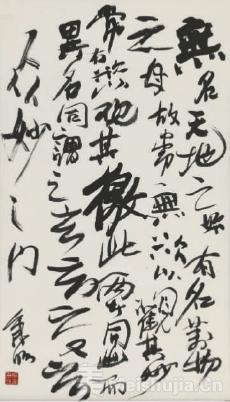 無名天地之始有名萬物
之母故常無欲以觀其妙
常有欲觀其徼此兩者同出而
異名同謂之玄玄之又玄
眾妙之門
meishujia.cn